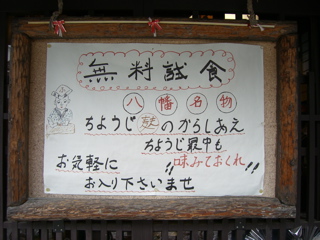 無料試食
八幡名物
ちょうじ麸のからしあえ
ちょうじ最中も
味みておくれ!!
お気軽に
お入り下さいませ